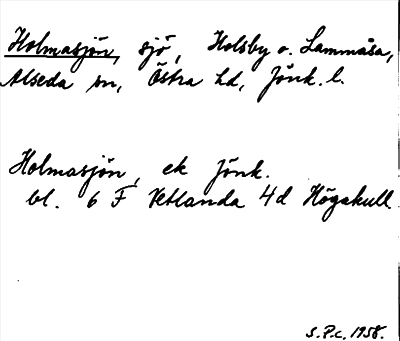 Holmasjön, sjö, Holsby o. Lammåsa,
Alseda sn, Östra hd, Jönk. l.
Holmasjön, ek Jönk.
bl. 6 F Vetlanda 4d Högakull
S.P.c. 1958.